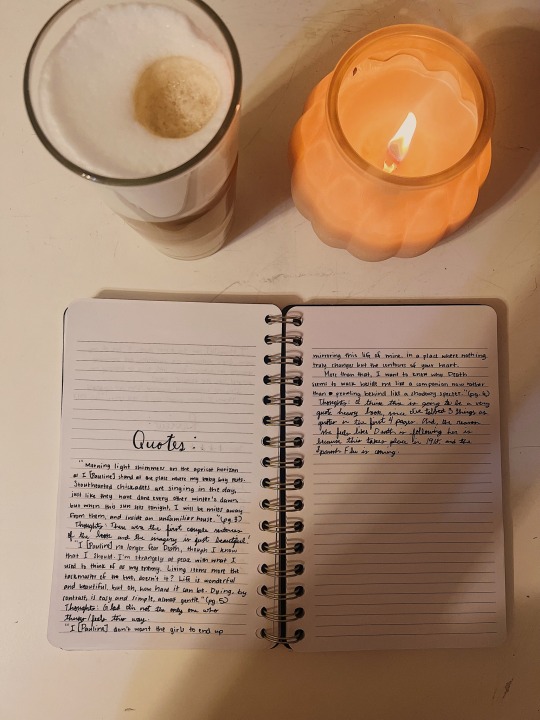 Quotes:
"Morning light shimmers on the apricot horizon
as I [Pauline] stand at the place where my baby boy rests.
Stouthearted chickadees are singing in the day,
just like they have done every other winter's dawn
but when this sun sets tonight, I will be miles away
from them, and inside an unfamiliar house." (pg. 3)
Thoughts: These were the first couple sentences
of the book and the imagery is just beautiful!
"I [Pauline] no longer fear Death, though I know
that I should. I'm strangely at peace with what I
used to think of as my enemy. Living seems more the
taskmaster of the two, doesn't it? Life is wonderful
and beautiful but oh, how hard it can be. Dying, by
contrast, is easy and simple, almost gentle." (pg. 5)
Thoughts: Glad I'm not the only one who
thinks/feels this way.
"I [Pauline] don't want the girls to end up
mirroring this life of mine, in a place where nothing
truly changes but the contours of your heart.
More than that, I want to know why Death
seems to walk beside me like a companion now rather
than prowling behind like a shadowy specter." (pg. 6)
Thoughts: I think this is going to be a very
quote heavy book, since I've tabbed 3 things as
quotes in the first 4 pages. And, the reason
she feels like Death is following her is
because this takes place in 1918 and the
Spanish Flu is coming.